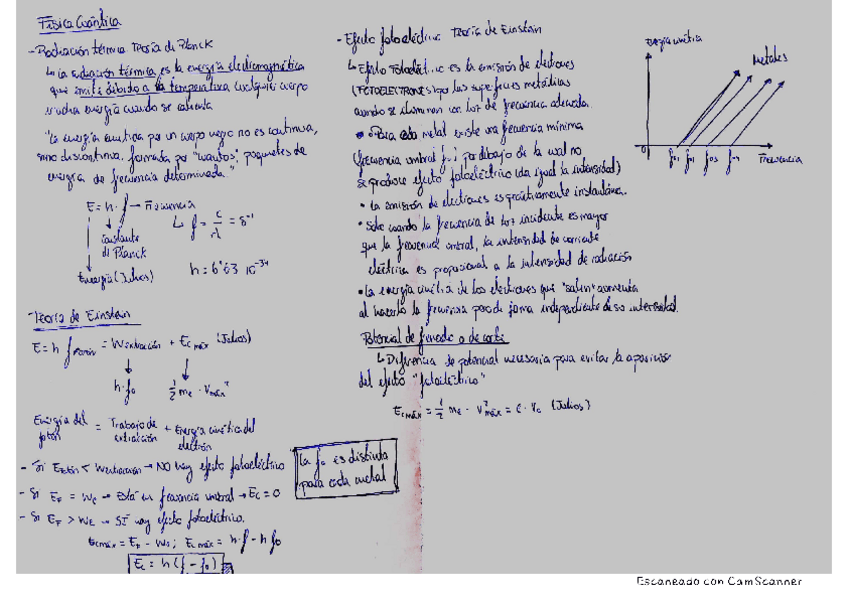 Física Cuántica
- Radiación térmica Teoría de Planck
↳ La radiación térmica es la energía electromagnética
que emite debido a la temperatura cualquier cuerpo
irradia energía cuando se calienta
"La energía emitida por un cuerpo negro no es continua,
sino discontinua, formada por "cuantos", paquetes de
energía de frecuencia determinada."
E = h · f → Frecuencia
↳ f = c/λ = s⁻¹
constante
de Planck
Energía (Julios)
h = 6'63 10⁻³⁴
- Teoría de Einstein
E = h f = Wextracción + Ec máx (Julios)
h·f₀
½ me · Vmáx²
Energía del fotón = Trabajo de extracción + Energía cinética del electrón
- Si Efotón < Wextracción → NO hay efecto fotoeléctrico
- Si EF = We → Está en frecuencia umbral → Ec = 0
- Si EF > WE → SÍ hay efecto fotoeléctrico.
Ecmáx = EF - We ; Ecmáx = h·f - h f₀
Ec = h (f - f₀)
La f₀ es distinta
para cada metal
- Efecto fotoeléctrico Teoría de Einstein
↳ Efecto Fotoeléctrico es la emisión de electrones
(FOTOELECTRONES) por las superficies metálicas
cuando se iluminan con luz de frecuencia adecuada.
• Para cada metal existe una frecuencia mínima
(frecuencia umbral f₀) por debajo de la cual no
se produce efecto fotoeléctrico (da igual la intensidad)
• La emisión de electrones es prácticamente instantánea.
• Solo cuando la frecuencia de luz incidente es mayor
que la frecuencia umbral, la intensidad de corriente
eléctrica es proporcional a la intensidad de radiación
• La energía cinética de los electrones que "salen" aumenta
al hacerlo la frecuencia pero de forma independiente de su intensidad.
Potencial de frenado o de corte
↳ Diferencia de potencial necesaria para evitar la aparición
del efecto "fotoeléctrico"
Ecmáx = ½ me · V²máx = e · Vc (Julios)
Energía cinética
Metales
0
f₀₁ f₀₂ f₀₃ f₀₄
Frecuencia
Escaneado con CamScanner